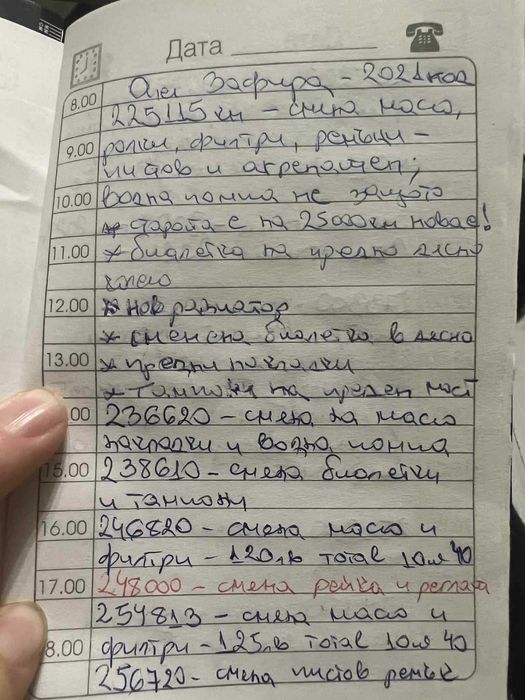 Дата
8.00 Опел Зафира - 2021год
225115км - смяна масло,
9.00 ролки, филтри, ремъци -
пистов и агрегатен;
10.00 водна помпа не защото
старата е на 25000км новая!
11.00 * биалетка на предно дясно
колело
12.00 * нов радиатор
* сменена биалетка в дясно
13.00 * предни накладки
* тампони на преден мост
.00 236620 - смяна на масло
накладки и водна помпа
15.00 238610 - смяна биалетки
и тампони
16.00 246820 - смяна масло и
филтри - 120лв total 10w 40
17.00 248000 - смяна рейка и реглаж
254813 - смяна масло и
8.00 филтри - 125лв total 10w 40
256720 - смяна пистов ремък